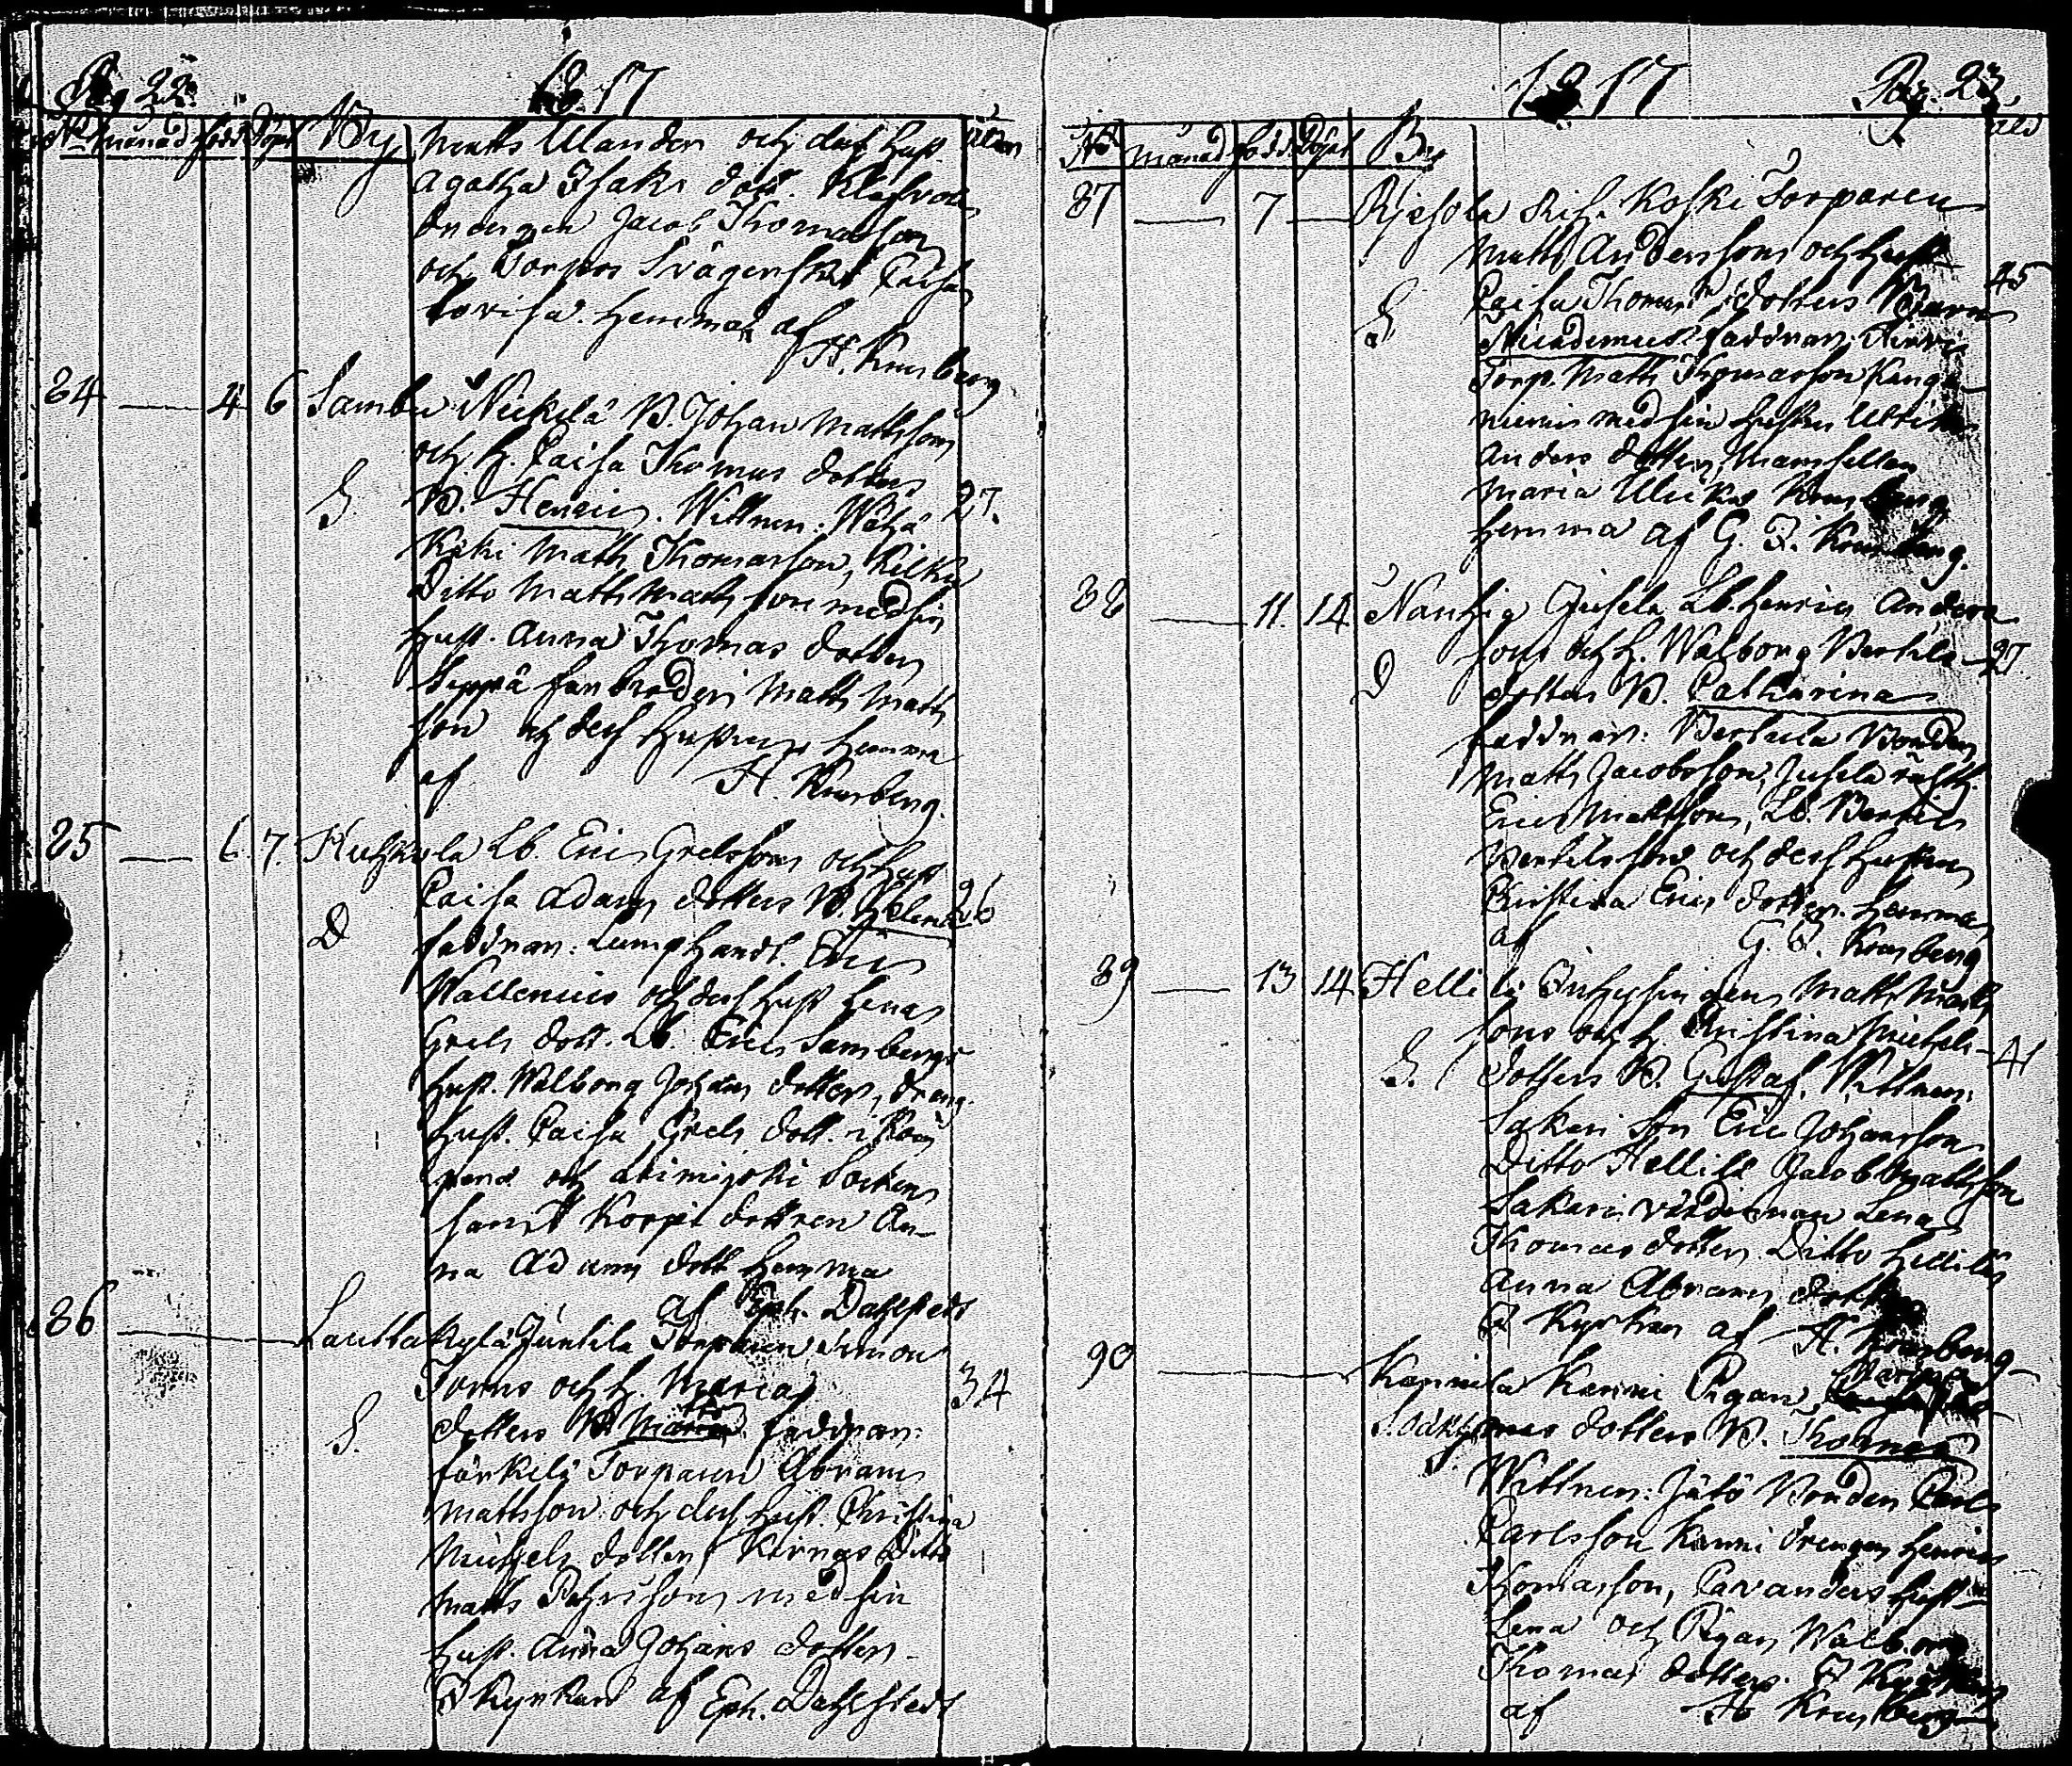 Pag 22.
1817
No månad född Döpt By ålder
Matts Ulander och dess Hust.
Agatha Isaks dott.
drengen Jacob Thomasson
och Torpars Svägerskan Caisa
Lovisa. Hemma af
H. Krusberg
84 — 4 6 Sambu Nickilä B. Johan Mattsson
och H. Caisa Thomas dotters
S. B. Henric. Wittnen: Wähä 27.
Kiki Matts Thomasson, Kilku
Ditto Matts Matts son med sin
Hust. Anna Thomas dotter
Seppä farbroder Matts Matts
son och dess Hustru hemma
af H. Krusberg.
85 — 6 7. Huhkola Lb. Eric Grelsson och Hust
Caisa Adams dotters B. Helena 26
D faddrar: Lumphandl. Eric
Wallenius och dess Hust Lena
Grels dott. Lb. Eric Sambergs
Hust. Walborg Johans dotter, dreng.
Hust. Caisa Grels dott.
och Akimijoki Socken
samt Korpi dottren An-
na Adams dott Hemma
af Eph. Dahlstedt
86 — Lauttakylä Junkila Torparen Simon
Toms och H. Maria 34
S. dotters B. Matts faddrar:
Torparen Abram
Mattsson och dess Hust. Christina
Michels dotter, Kirnas Ditto
Matts Pehrsson med sin
Hust. Anna Johans dotter
I Kyrkan af Eph. Dahlstedt
1817 Pag. 23.
No månad född Döpt By åld
87 — 7 — Rjesola Koski Torparen
Matts Anderssons och Hust
Caisa Thomas dotters Barn 45
S Nicodemus faddrar:
Torp. Matts Thomasson Kanga-
niemi med sin hustru Ulrika
Anders dotter, Mamsellen
Maria Ulrika Krusberg
hemma af G. F. Krusberg.
88 — 11. 14 Nanhia Jusela Lb. Henric Anders
sons och H. Walborg Bertils- 27
D dotters B. Catharina
faddrar: Bertula Bonden
Matts Jacobsson, Jusela
Eric Mattsson, Lb. Bertil
Bertilsson och dess Hustru
Christina Erics dotter. Hemma
af G. F. Krusberg
89 — 13 14 Helli lä Inhysingen Matts Matts
sons och H. Christina Michels- 41
S. dotters B. Gustaf. Wittnen:
Sakari son Eric Johansson
Ditto Hellilä Jacob Mattsson
Sakari värdinnan Lena
Thomas dotter. Ditto Hellilä
Anna Abrams dotter
I Kyrkan af H. Krusberg
90 — Karinila Karini Pigan Maria
dotters B. Thomas
Wittnen: Jätö Bonden Carl
Carlsson Karini drengen Henric
Thomasson, Pavanders Hust
Lena och Pigan Walborg
Thomas dotter. I Kyrkan
af H. Krusberg